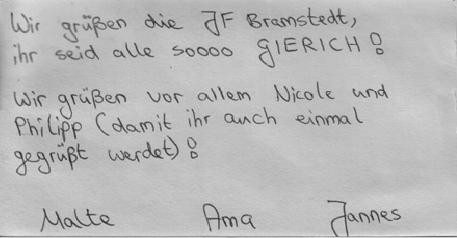 Wir grüßen die JF Bramstedt,
ihr seid alle soooo GIERICH!
Wir grüßen vor allem Nicole und
Philipp (damit ihr auch einmal
gegrüßt werdet)!
Malte Ama Jannes